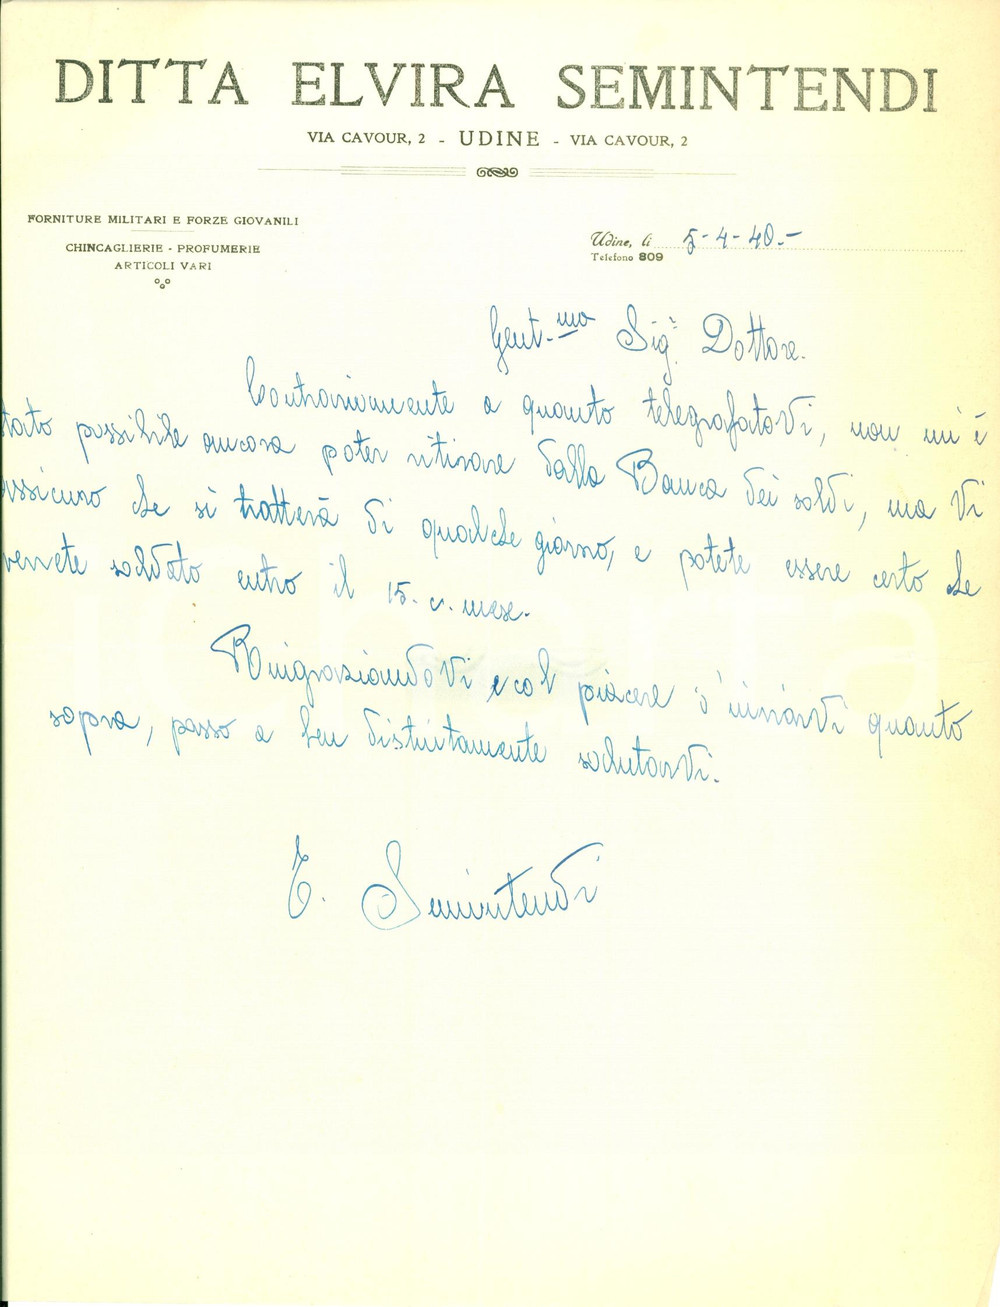 DITTA ELVIRA SEMINTENDI
VIA CAVOUR, 2 - UDINE - VIA CAVOUR, 2
FORNITURE MILITARI E FORZE GIOVANILI
CHINCAGLIERIE - PROFUMERIE
ARTICOLI VARI
Udine, li 5-4-40.-
Telefono 809
Gent.mo Sig. Dottore.
Contrariamente a quanto telegrafatovi, non mi è
stato possibile ancora poter ritirare dalla Banca dei soldi, ma Vi
assicuro che si tratterà di qualche giorno, e potete essere certo che
verrete saldato entro il 15. c. mese.
RingraziandoVi e col piacere d'inviarvi quanto
sopra, passo a ben distintamente salutarVi.
E. Semintendi